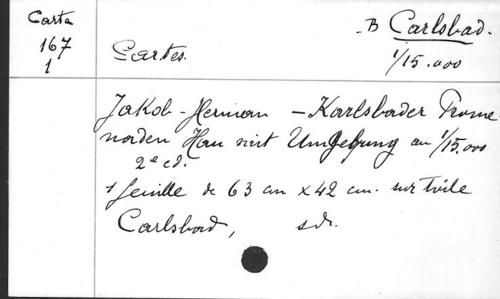 Carta
167
1
Cartes.
B Carlsbad.
1/15.000
Jakob-Herman - Karlsbader Prome
naden Han mit Umgebung au 1/15.000
2e ed.
1 feuille de 63 cm x 42 cm. sur toile
Carlsbad, sdr.